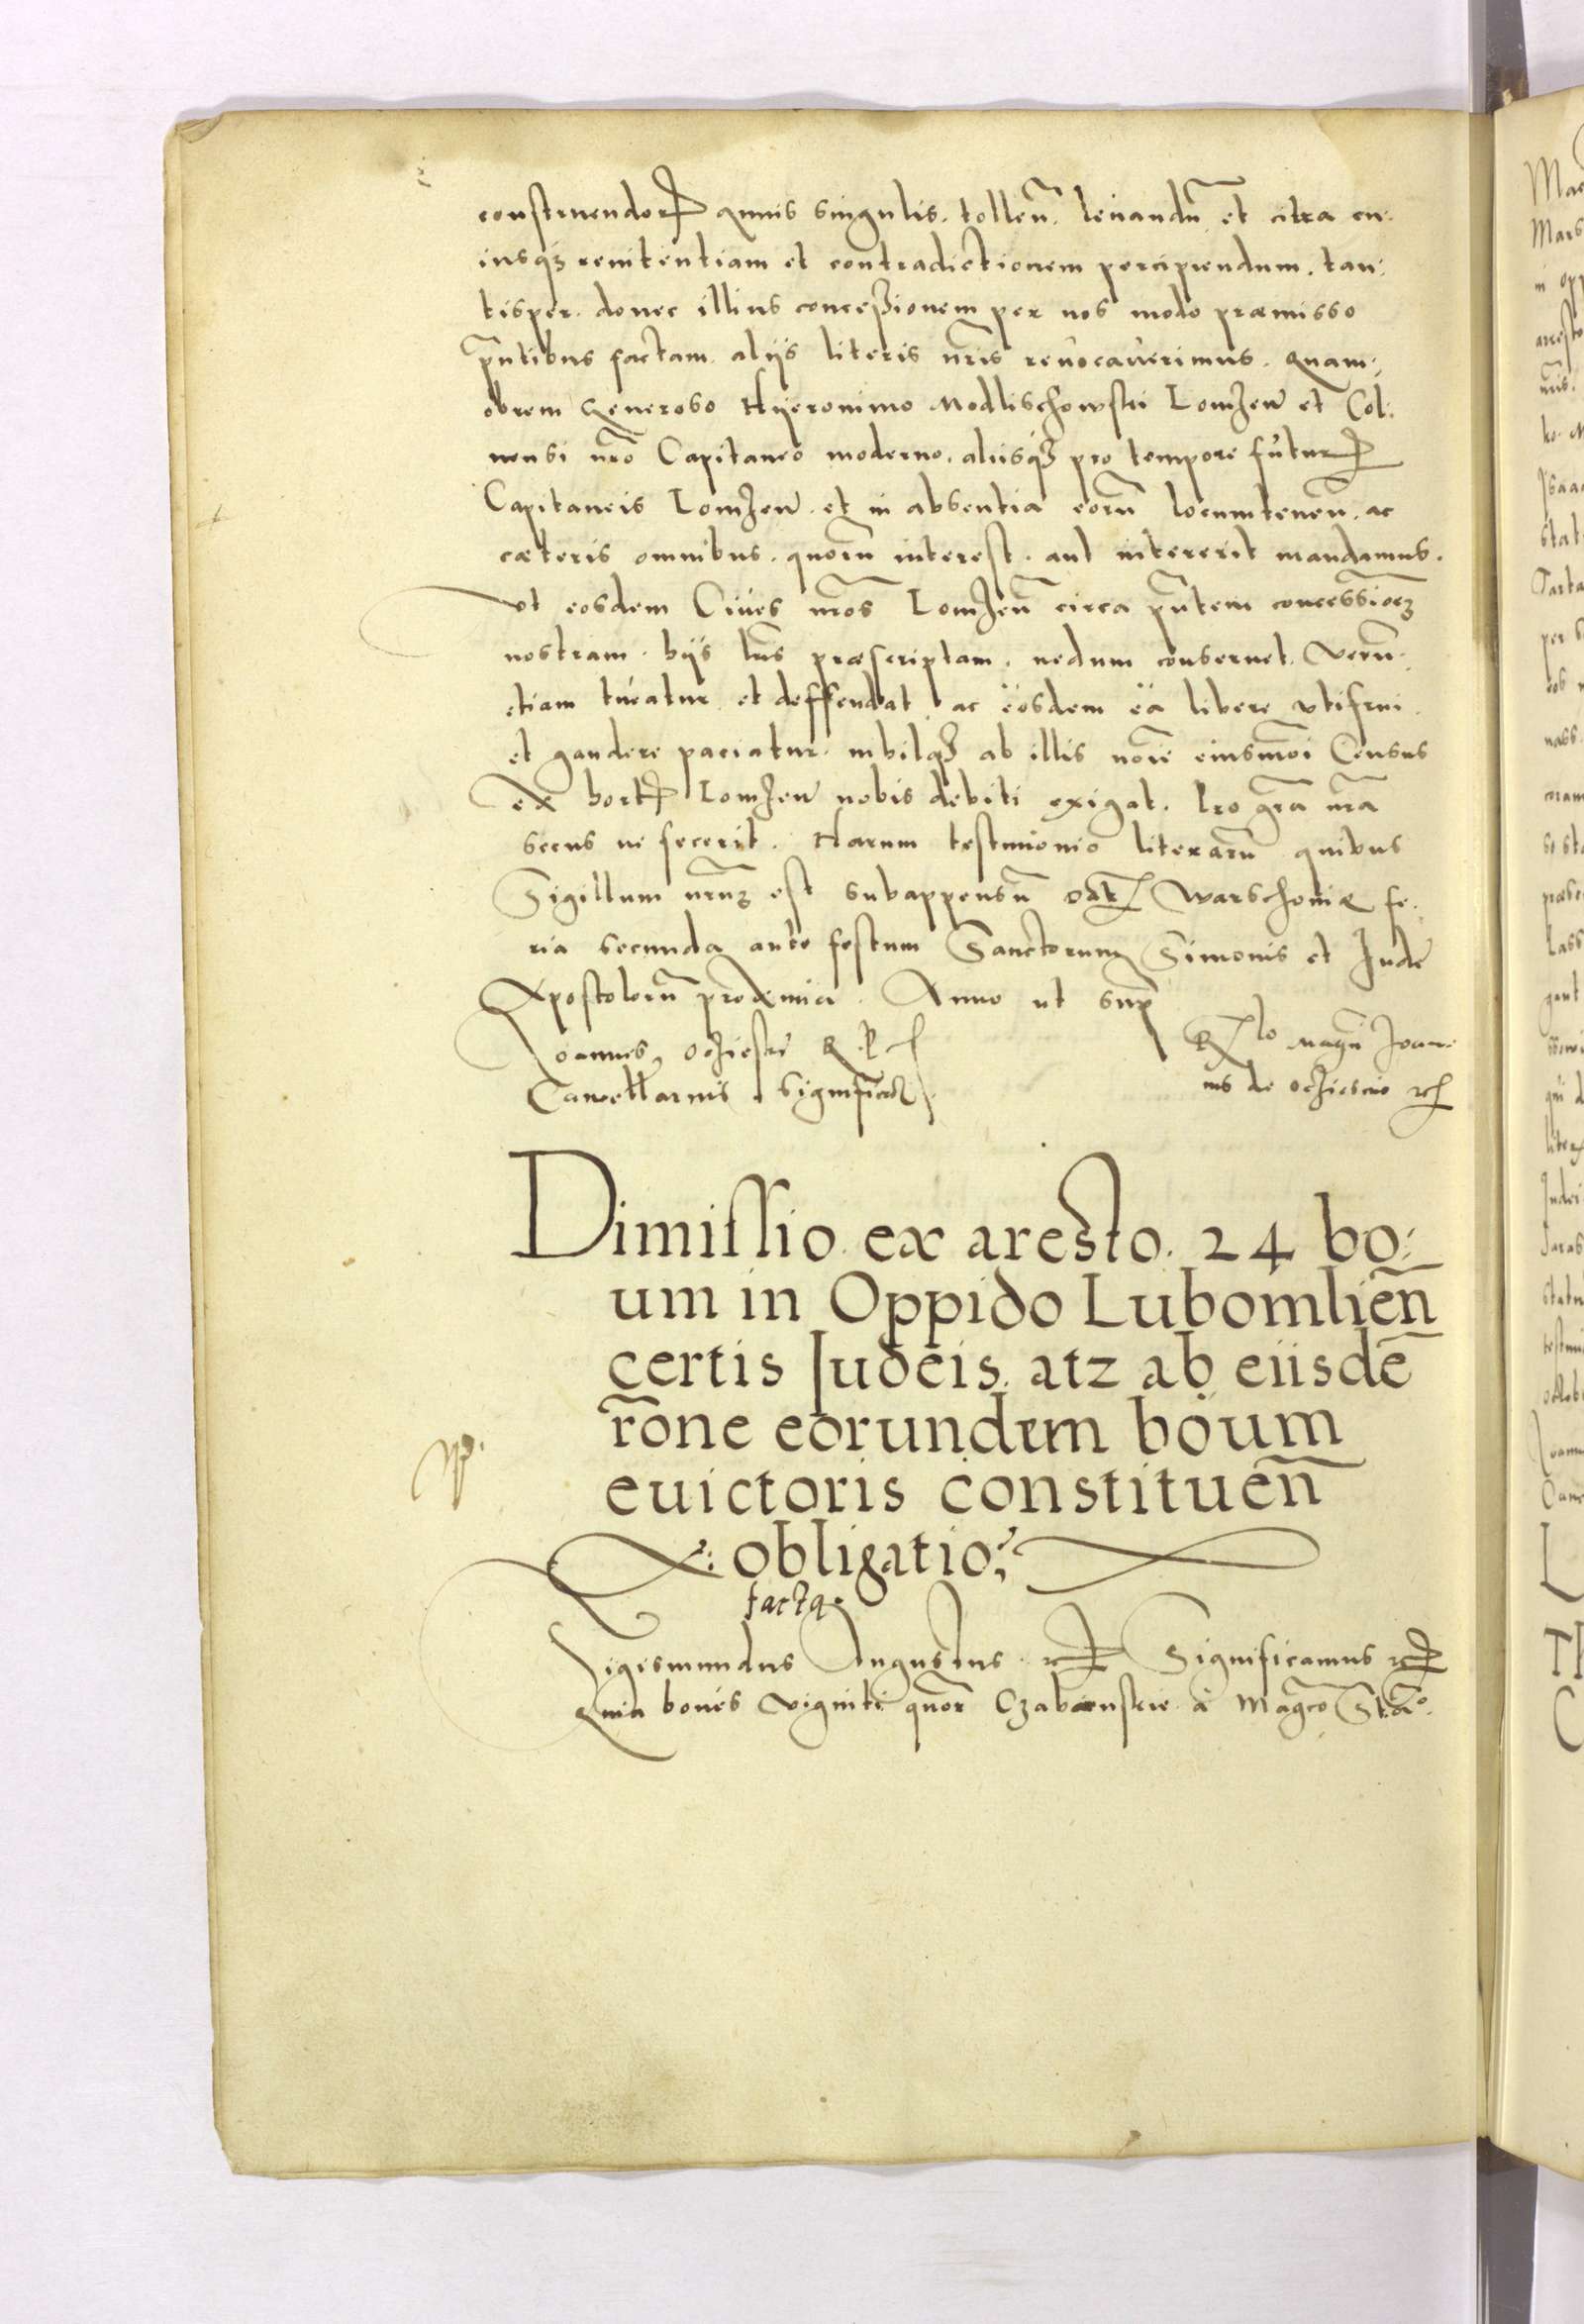 construendor annis singulis. tolleñ. leuandũ et citra cu.
iusq3 renitentiam et contradictionem percipiendum. tan:
tisper. donec illius conceßionem per nos modo præmisso
pñtibus factam. alijs literis nr̃is reuocauerimus. Quam:
obrem Generoso Hÿeronimo Modlischowski Lomzeñ et Col:
nensi nr̃o Capitaneo moderno. aliisq3 pro tempore futur
Capitaneis Lomzeñ. et in absentia eorũ locumteneñ. ac
cæteris omnibus. quorũ interest. aut intererit mandamus.
vt eosdem Ciues nr̃os Lomzeñ circa pñtem concessiõe3
nostram. hijs lr̃is præscriptam. nedum conseruet. verũ.
etiam tueatur et deffendat. ac eosdem ea libere vtifrui.
et gaudere paciatur. nihilq3 ab illis nõie eiusmõi Census
ex hort Lomzeñ nobis debiti exigat. Pro grã nrã
secus ne fecerit. Harum testimonio literarũ quibus
Sigillum nrũ3 est subappensũ Dat Warschouiæ fe.
ria secunda ante festum Sanctorum Simonis et Jude
Apostolorũ proxima. Anno ut sup
Joannes Oczieski R. P.
Cancellarius sigmficat
R lo magñi Joan.
nis de Ocziescio rc
Dimissio ex aresto. 24 bo:
um in Oppido Lubomlieñ
certis Judeis. atz ab eiisdẽ
rõne eorundem boum
euictoris constitueñ
obligatio:
facta.
Sigismundus Augustus rc Significamus rc
Quia boues viginti quõr Czabanskie a Magco Sta°.